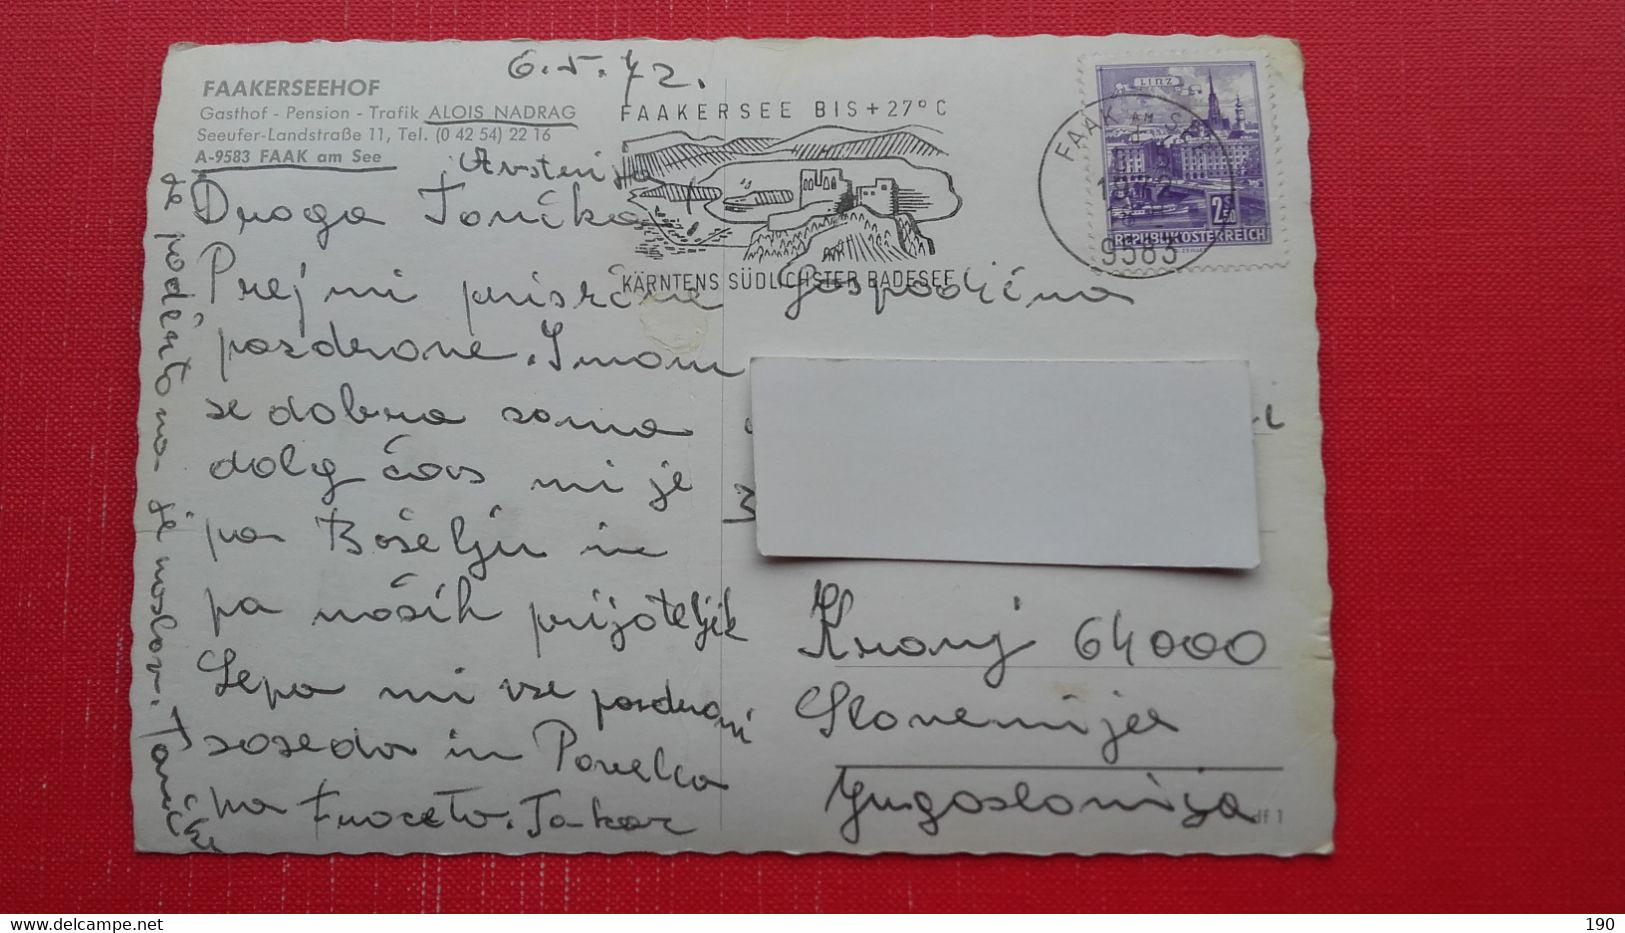 6.5.72.
FAAKERSEEHOF
Gasthof - Pension - Trafik ALOIS NADRAG
Seeufer-Landstraße 11, Tel. (0 42 54) 22 16
A-9583 FAAK am See
FAAKERSEE BIS + 27° C
KÄRNTENS SÜDLICHSTER BADESEE
LINZ
2.50
REPUBLIK ÖSTERREICH
FAAK AM SEE
1972
9583
Draga Tončka
Prejmi prisrčne
pozdrave. Imam
se dobro samo
dolg čas mi je
po Bošelju in
pa naših prijateljih
Lepo mi vse pozdravi
soseda in Pavelca
pa
je podčrtano je naslov. Tončka
Gospodična
Kranj 64000
Slovenija
Jugoslavija
df 1
Delcampe.net
tomi63
190